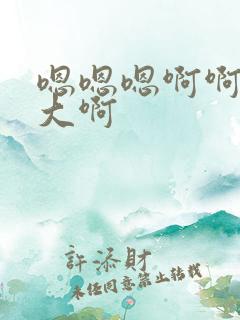 嗯嗯嗯啊啊
大啊
許添財
未经同意禁止转载